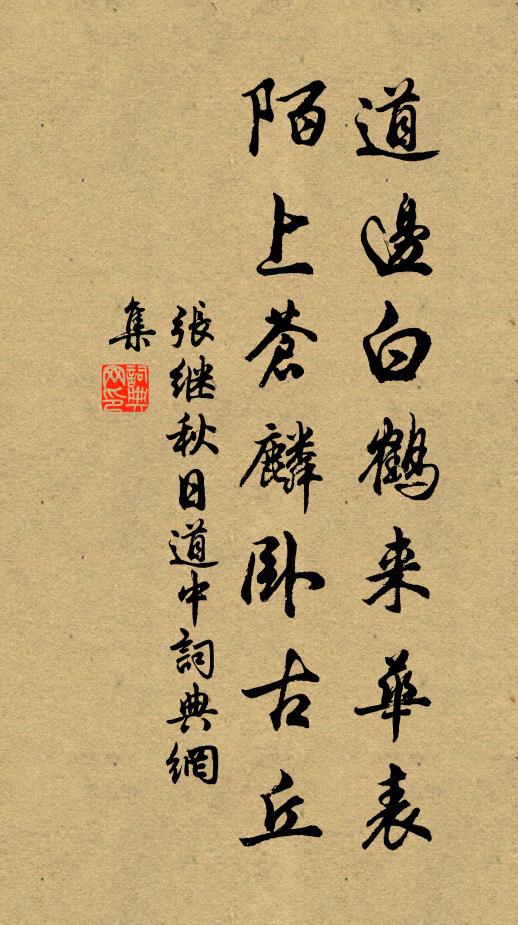 道邊白鶴来華表
陌上蒼麟卧古丘
張继秋日道中詞典網
集
詞典网印